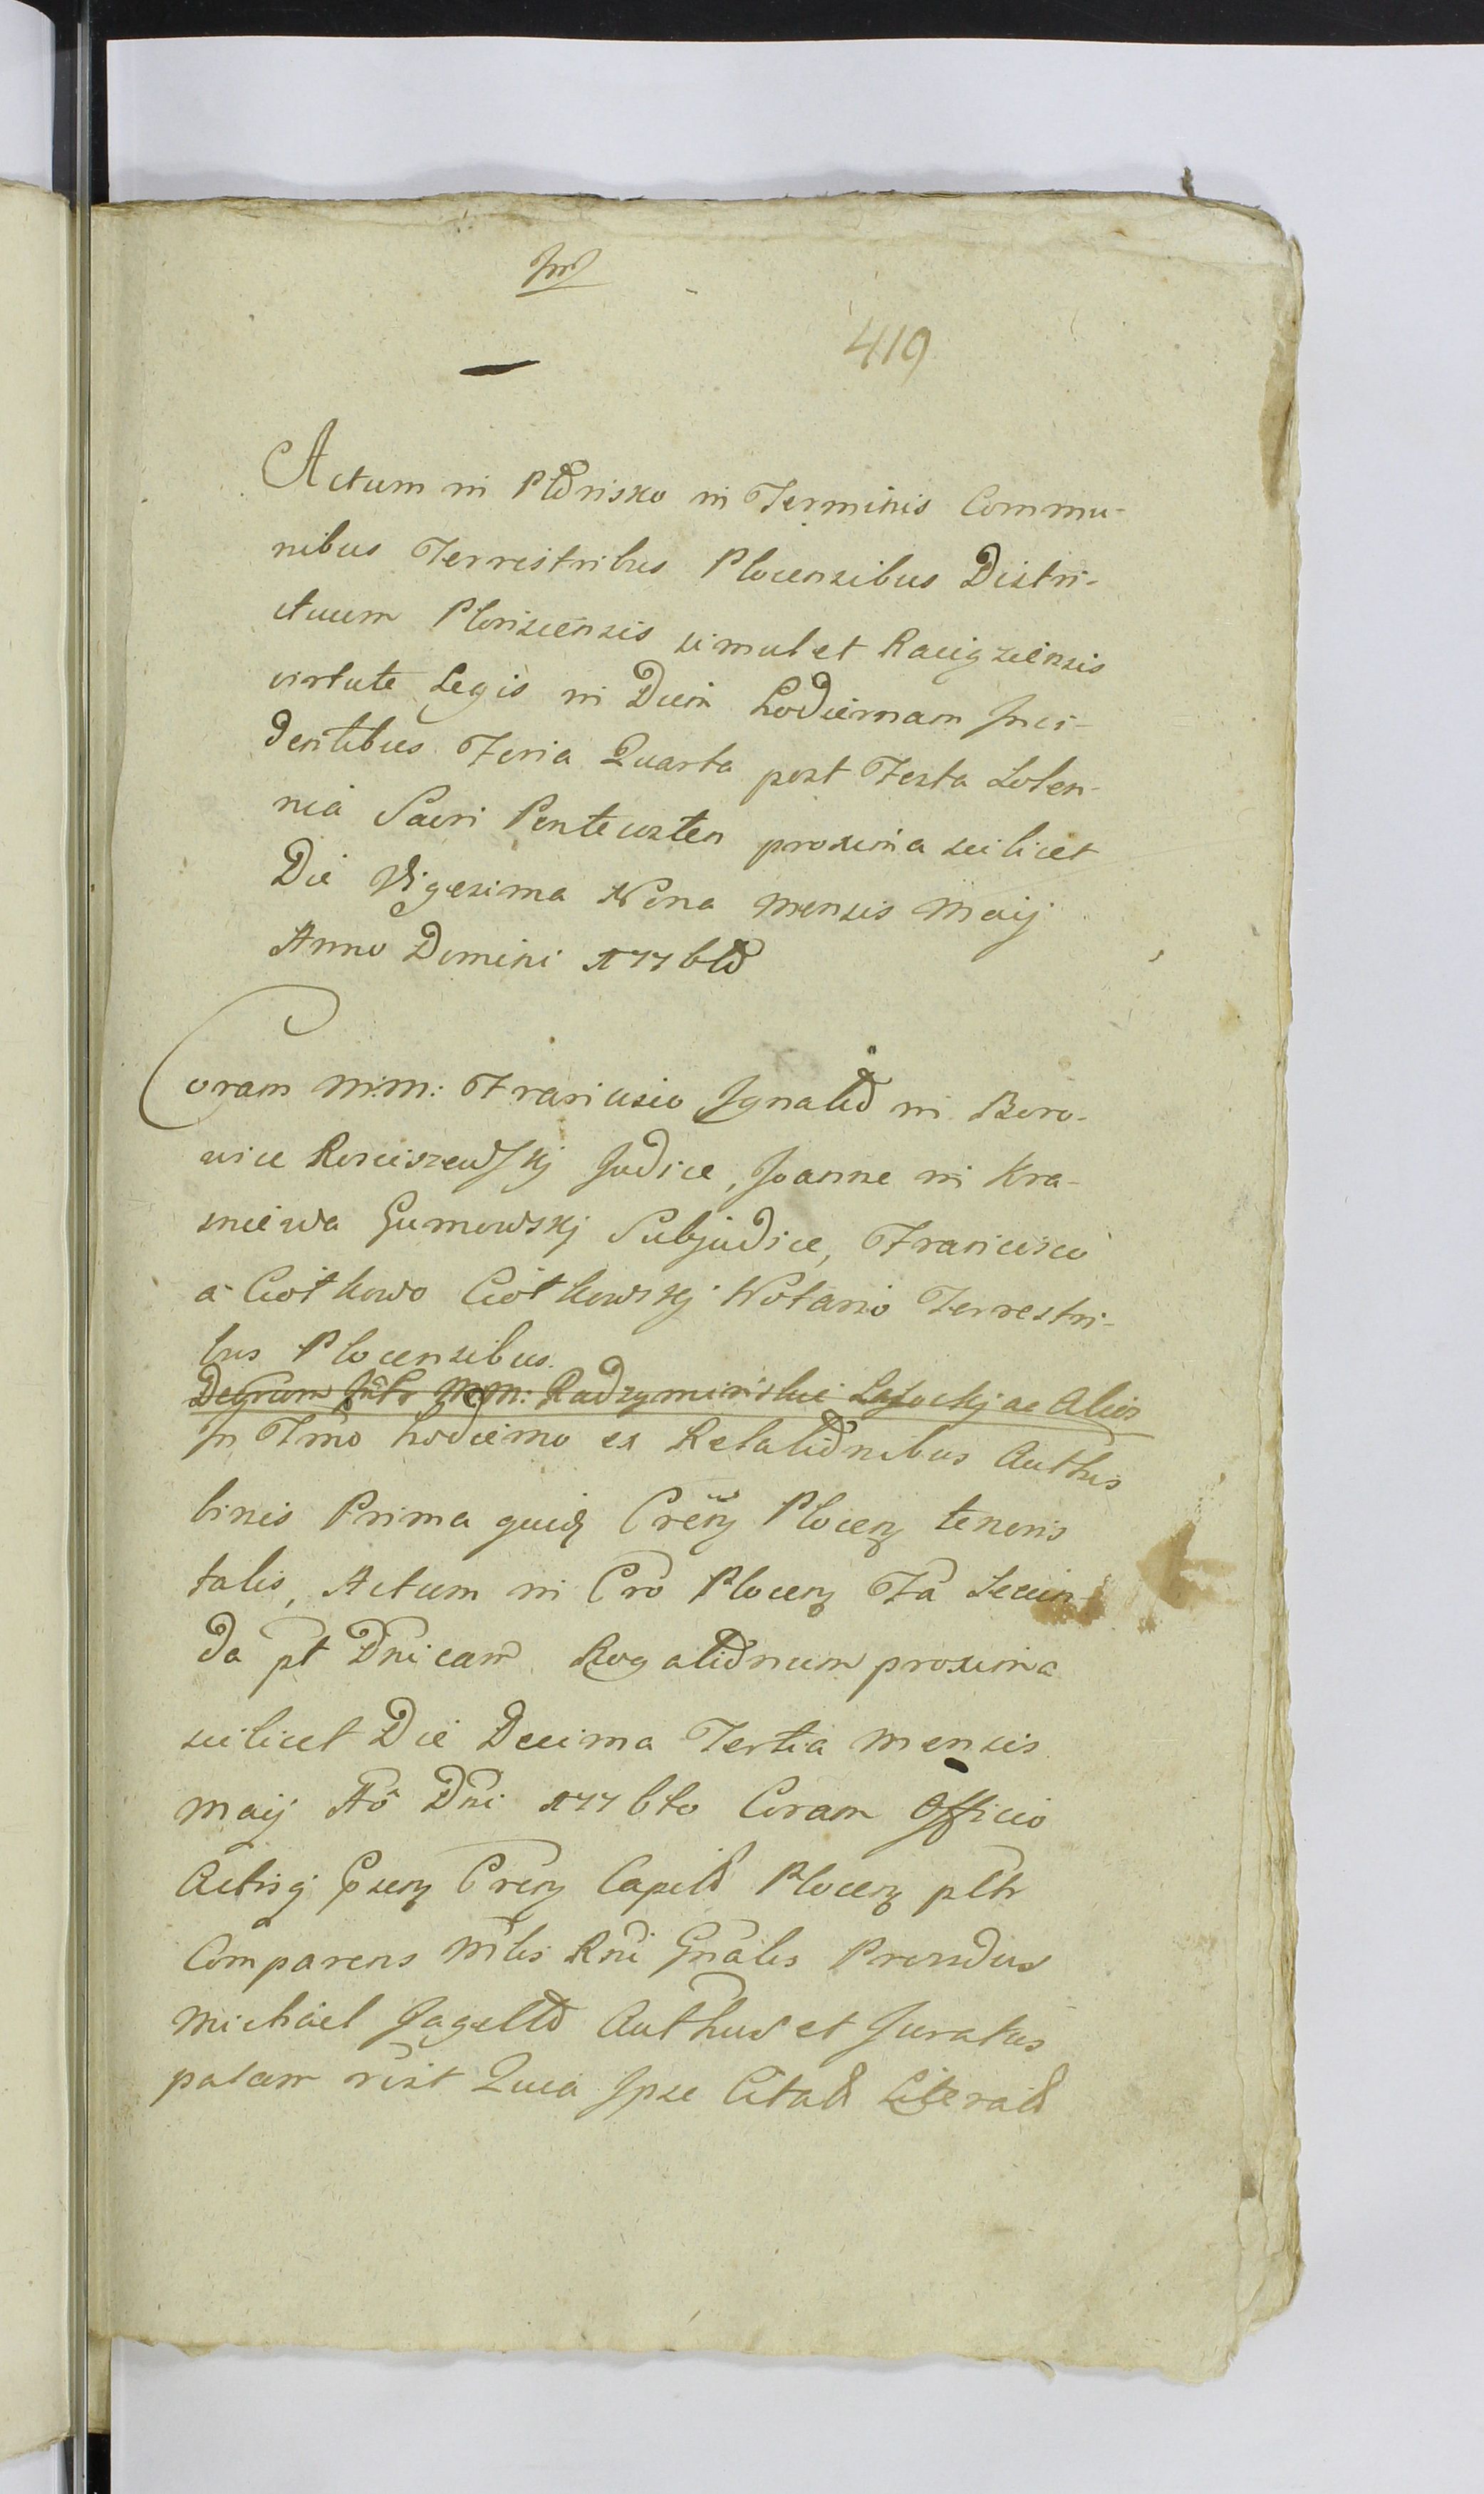 419
Actum in Płonsko in Terminis Commu-
nibus Terrestribus Plocensibus Distri-
ctuum Plonscensis simul et Raciązensis
virtute Legis in Diem hodiernam Inci-
dentibus Feria Quarta post Festa Solen-
nia Sacri Pentecosten proxima scilicet
Die Vigesima Nona Mensis Maij
Anno Domini 1776to
Coram M:M: Francisco Ignatio in Boro-
wice Rosciszewskj Judice, Joanne in Kra-
sniewa Gumowskj Subjudice, Francisco
a Ciołkowo Ciołkowskj Notario Terrestri-
bus Plocensibus.
Radzyminskie Lasockj ac Alios
In Tmo hodierno ex Relationibus Authis
binis Prima quidē Crēn Plocen tenoris
talis, Actum in Cro Plocen Fa Secun-
da pt Dnicam Rogationum proxima
scilicet Die Decima Tertia Mensis
Maij Ao Dni 1776to Coram Officio
Actisq Cren Capit Plocen plr
Comparens Mlis Rni Gnalis Provdus
Michael Jagiełło Authus et Juratus
palam rixit Quia Ipse Citat Literat